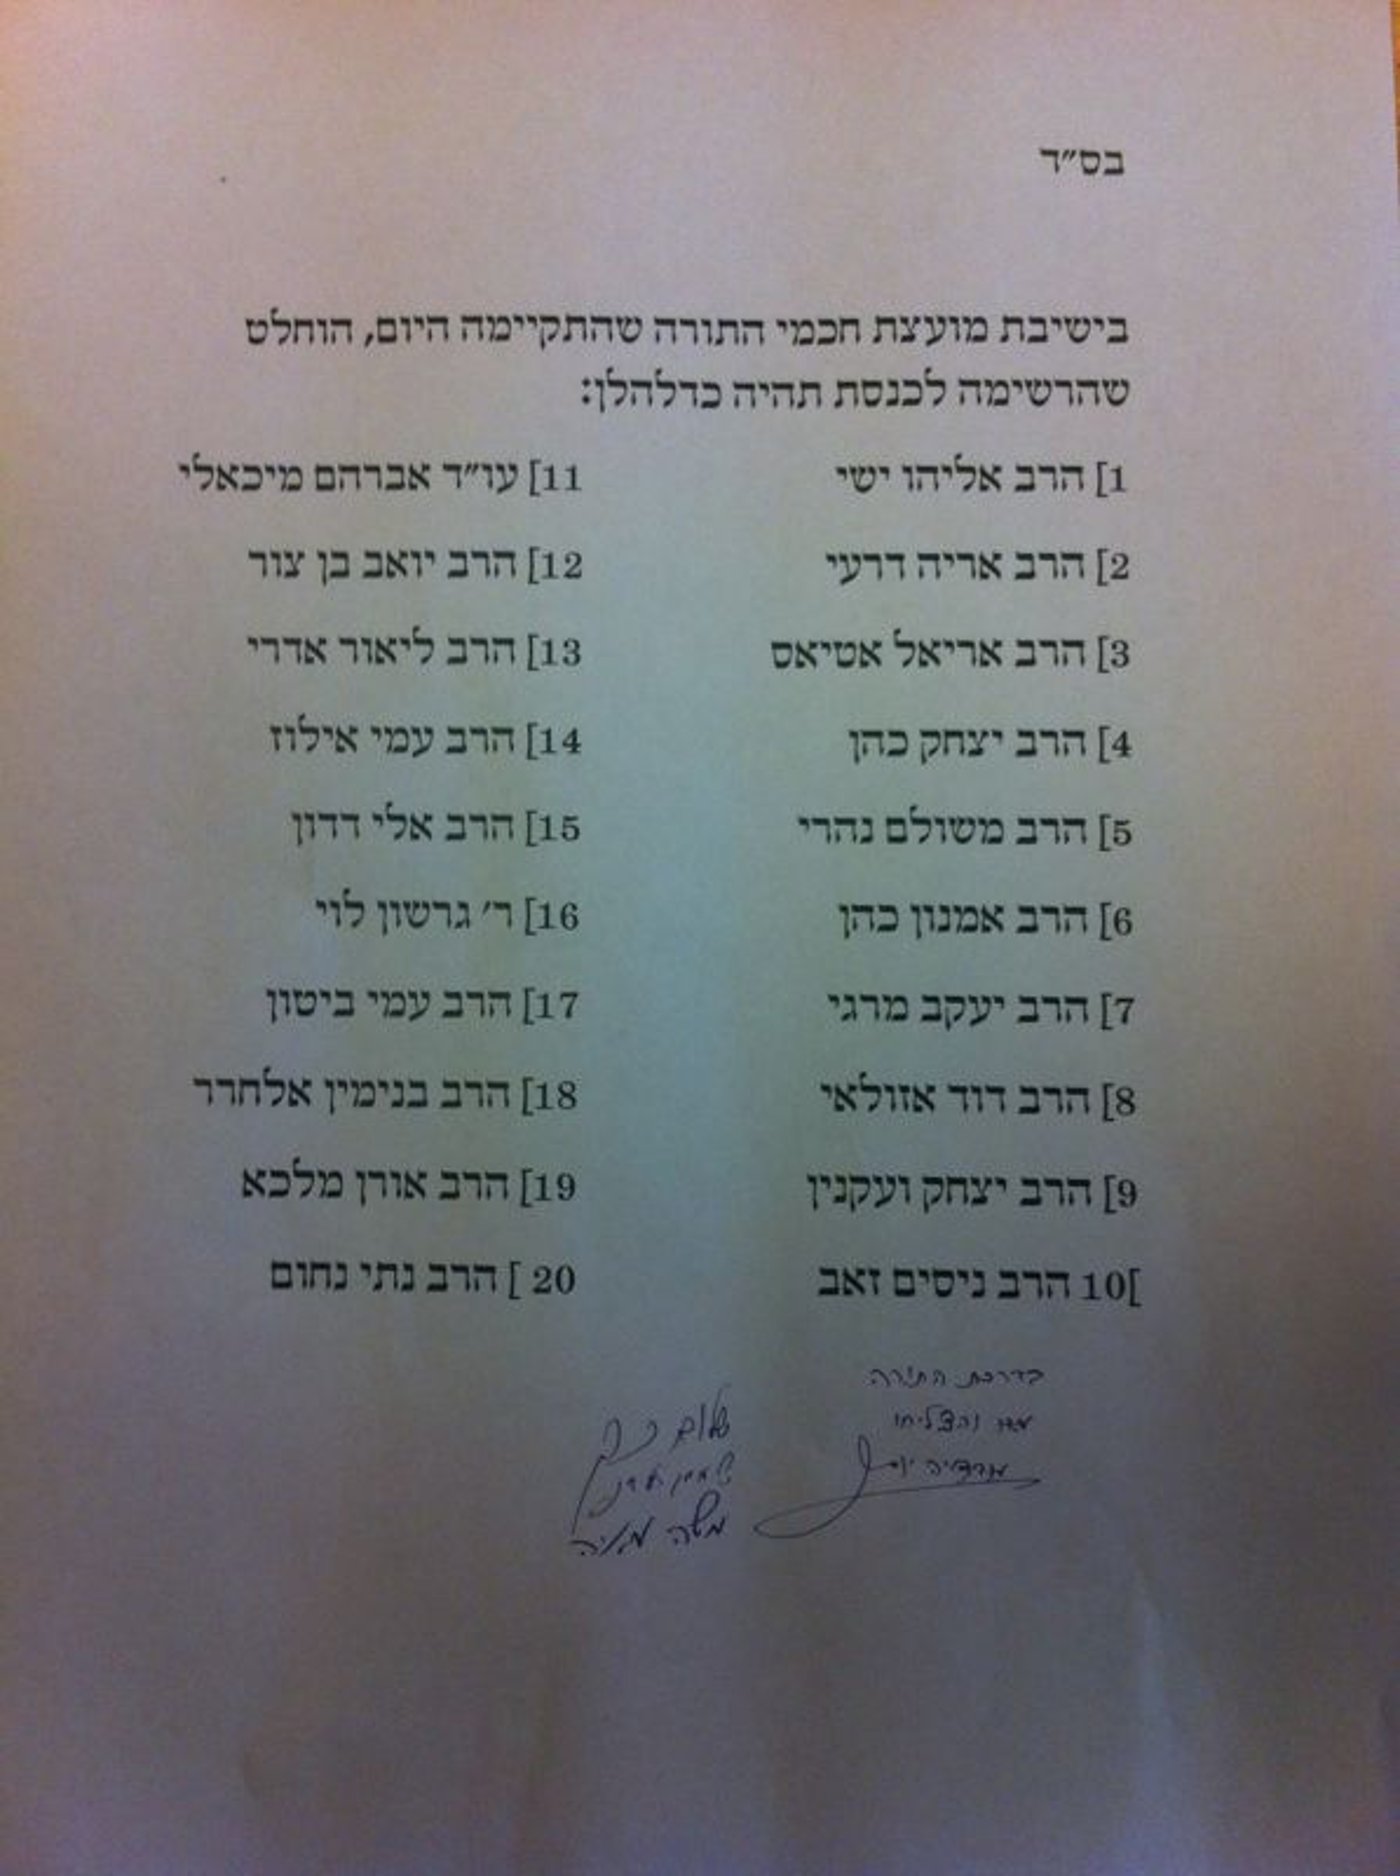 בס״ד
בישיבת מועצת חכמי התורה שהתקיימה היום, הוחלט
שהרשימה לכנסת תהיה כדלהלן:
1] הרב אליהו ישי
2] הרב אריה דרעי
3] הרב אריאל אטיאס
4] הרב יצחק כהן
5] הרב משולם נהרי
6] הרב אמנון כהן
7] הרב יעקב מרגי
8] הרב דוד אזולאי
9] הרב יצחק ועקנין
]10 הרב ניסים זאב
11] עו״ד אברהם מיכאלי
12] הרב יואב בן צור
13] הרב ליאור אדרי
14] הרב עמי אילוז
15] הרב אלי דדון
16] ר׳ גרשון לוי
17] הרב עמי ביטון
18] הרב בנימין אלחרר
19] הרב אורן מלכא
20 ] הרב נתי נחום
בדרכת התורה
והצליחו
עובדיה יוסף
שלום כהן
משה מאיה